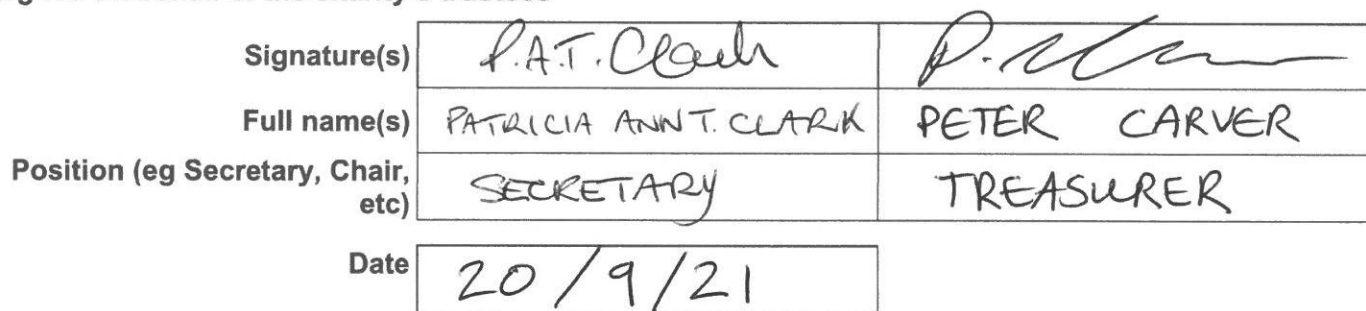 Signature(s) P.A.T. Clark P.
Full name(s) PATRICIA ANN T. CLARK PETER CARVER
Position (eg Secretary, Chair,
etc) SECRETARY TREASURER
Date 20/9/21